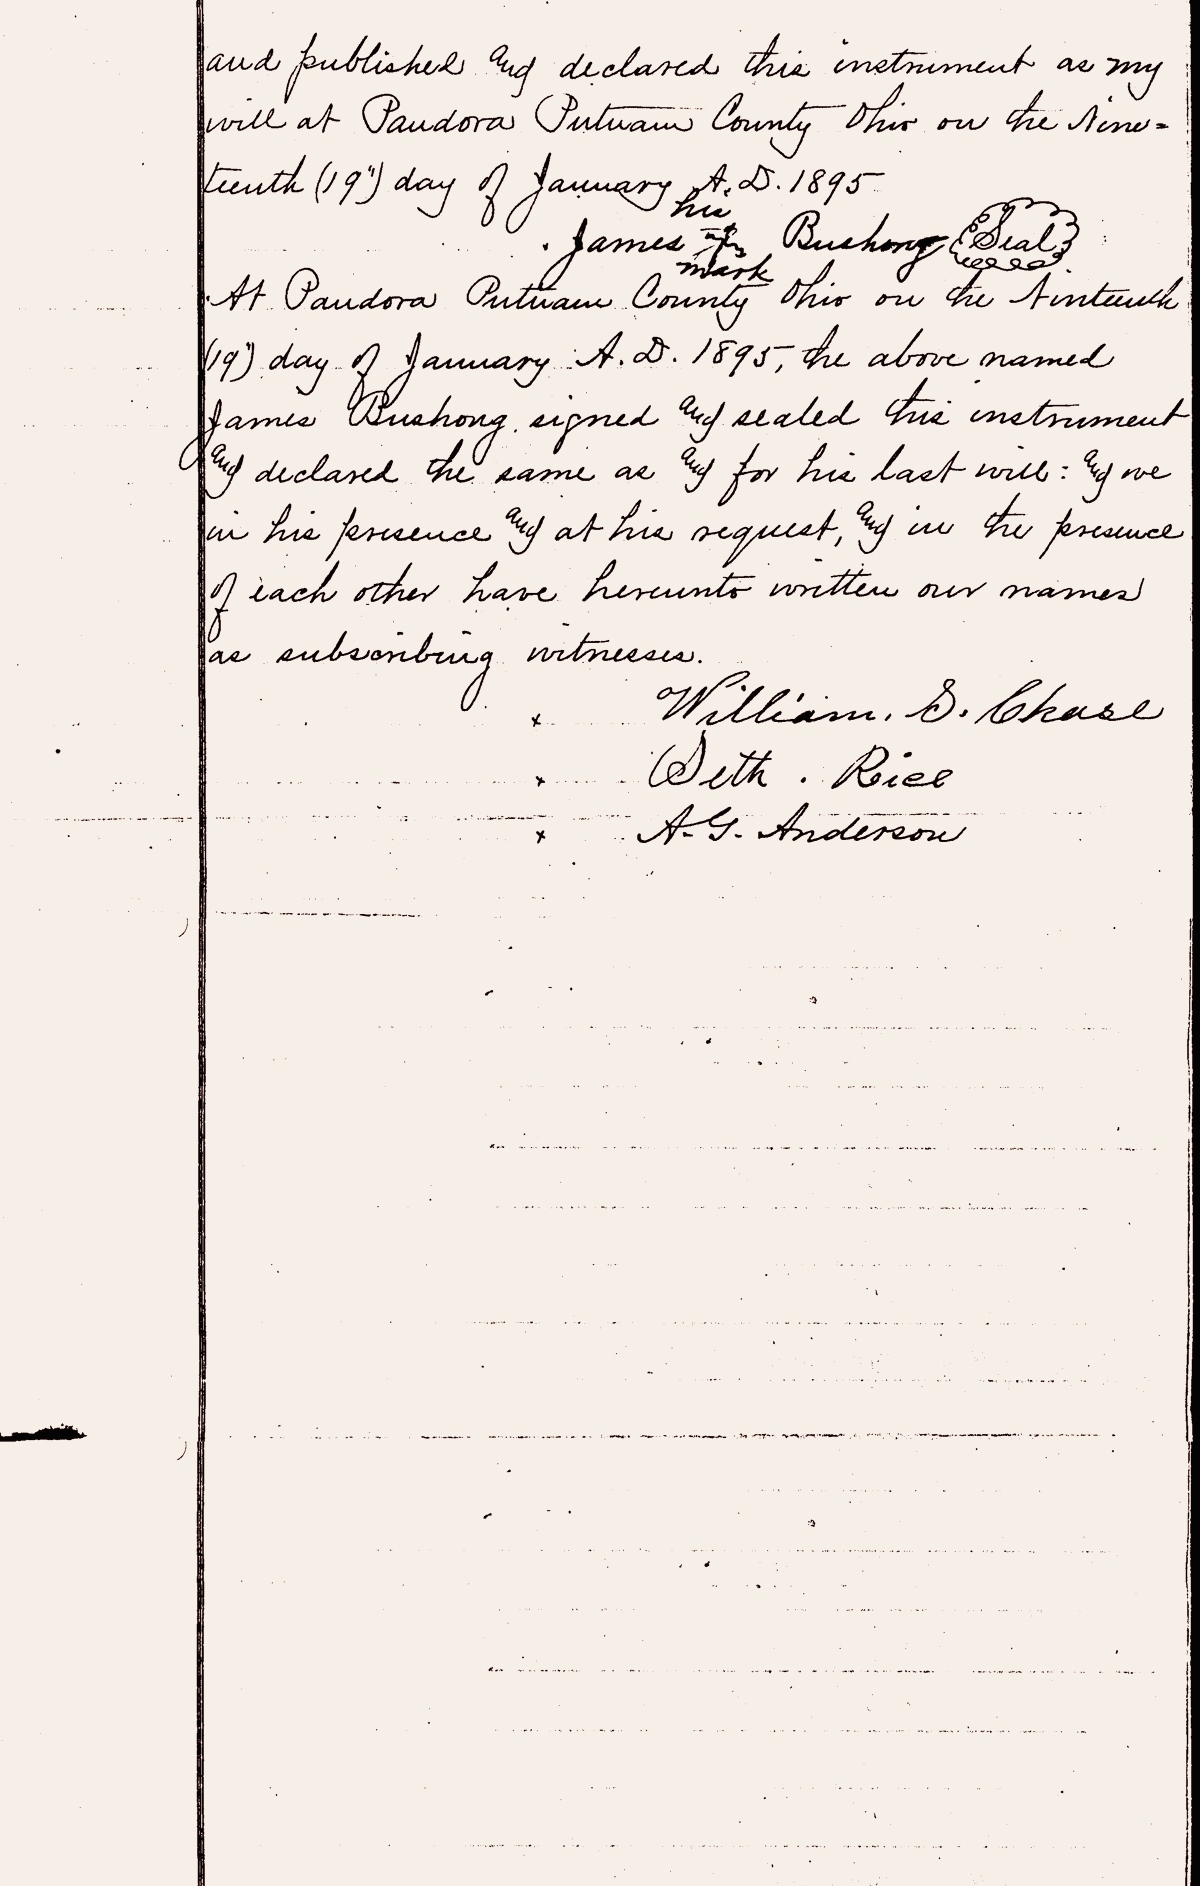 and published and declared this instrument as my
will at Pandora Putnam County Ohio on the Nine=
teenth (19") day of January A.D. 1895
his
James Bushong (Seal)
mark
At Pandora Putnam County Ohio on the Ninteenth
(19") day of January A.D. 1895, the above named
James Bushong signed and sealed this instrument
and declared the same as and for his last will: and we
in his presence and at his request, and in the presence
of each other have hereunto written our names
as subscribing witnesses.
x William. S. Chase
x Seth . Rice
x A.G. Anderson